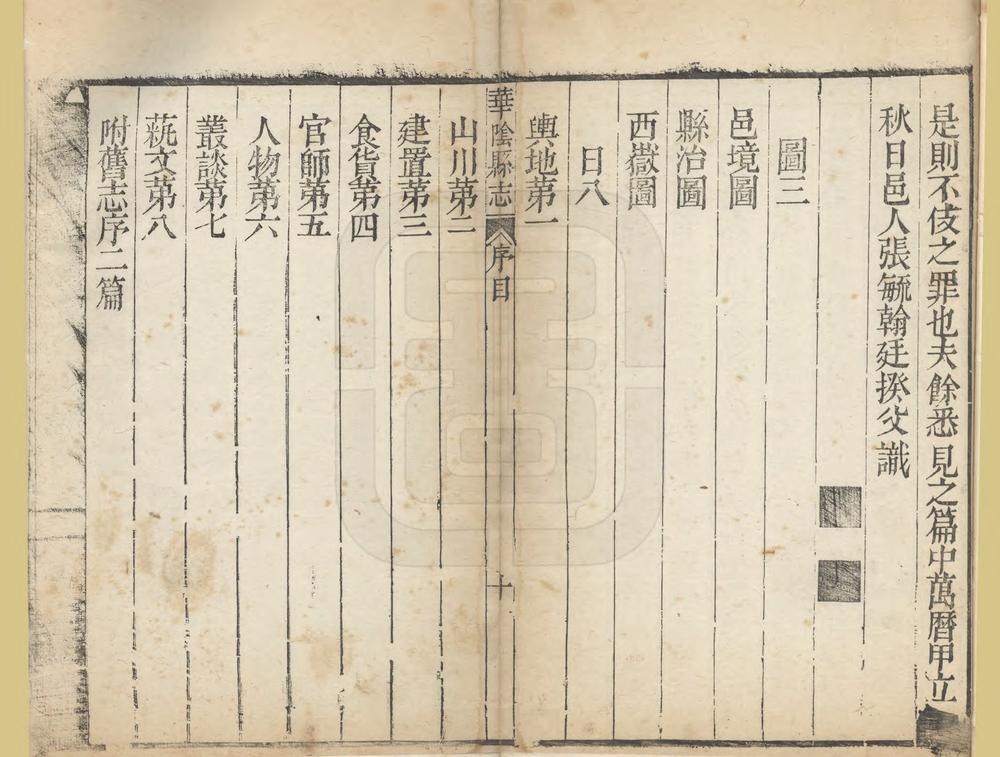 是則不伎之罪也夫餘悉見之篇中萬曆甲立
秋日邑人張毓翰廷揆父識
圖三
邑境圖
縣治圖
西嶽圖
目八
輿地第一
華陰縣志
序目
十
山川第二
建置第三
食貨第四
官師第五
人物第六
叢談第七
蓺文第八
附舊志序二篇